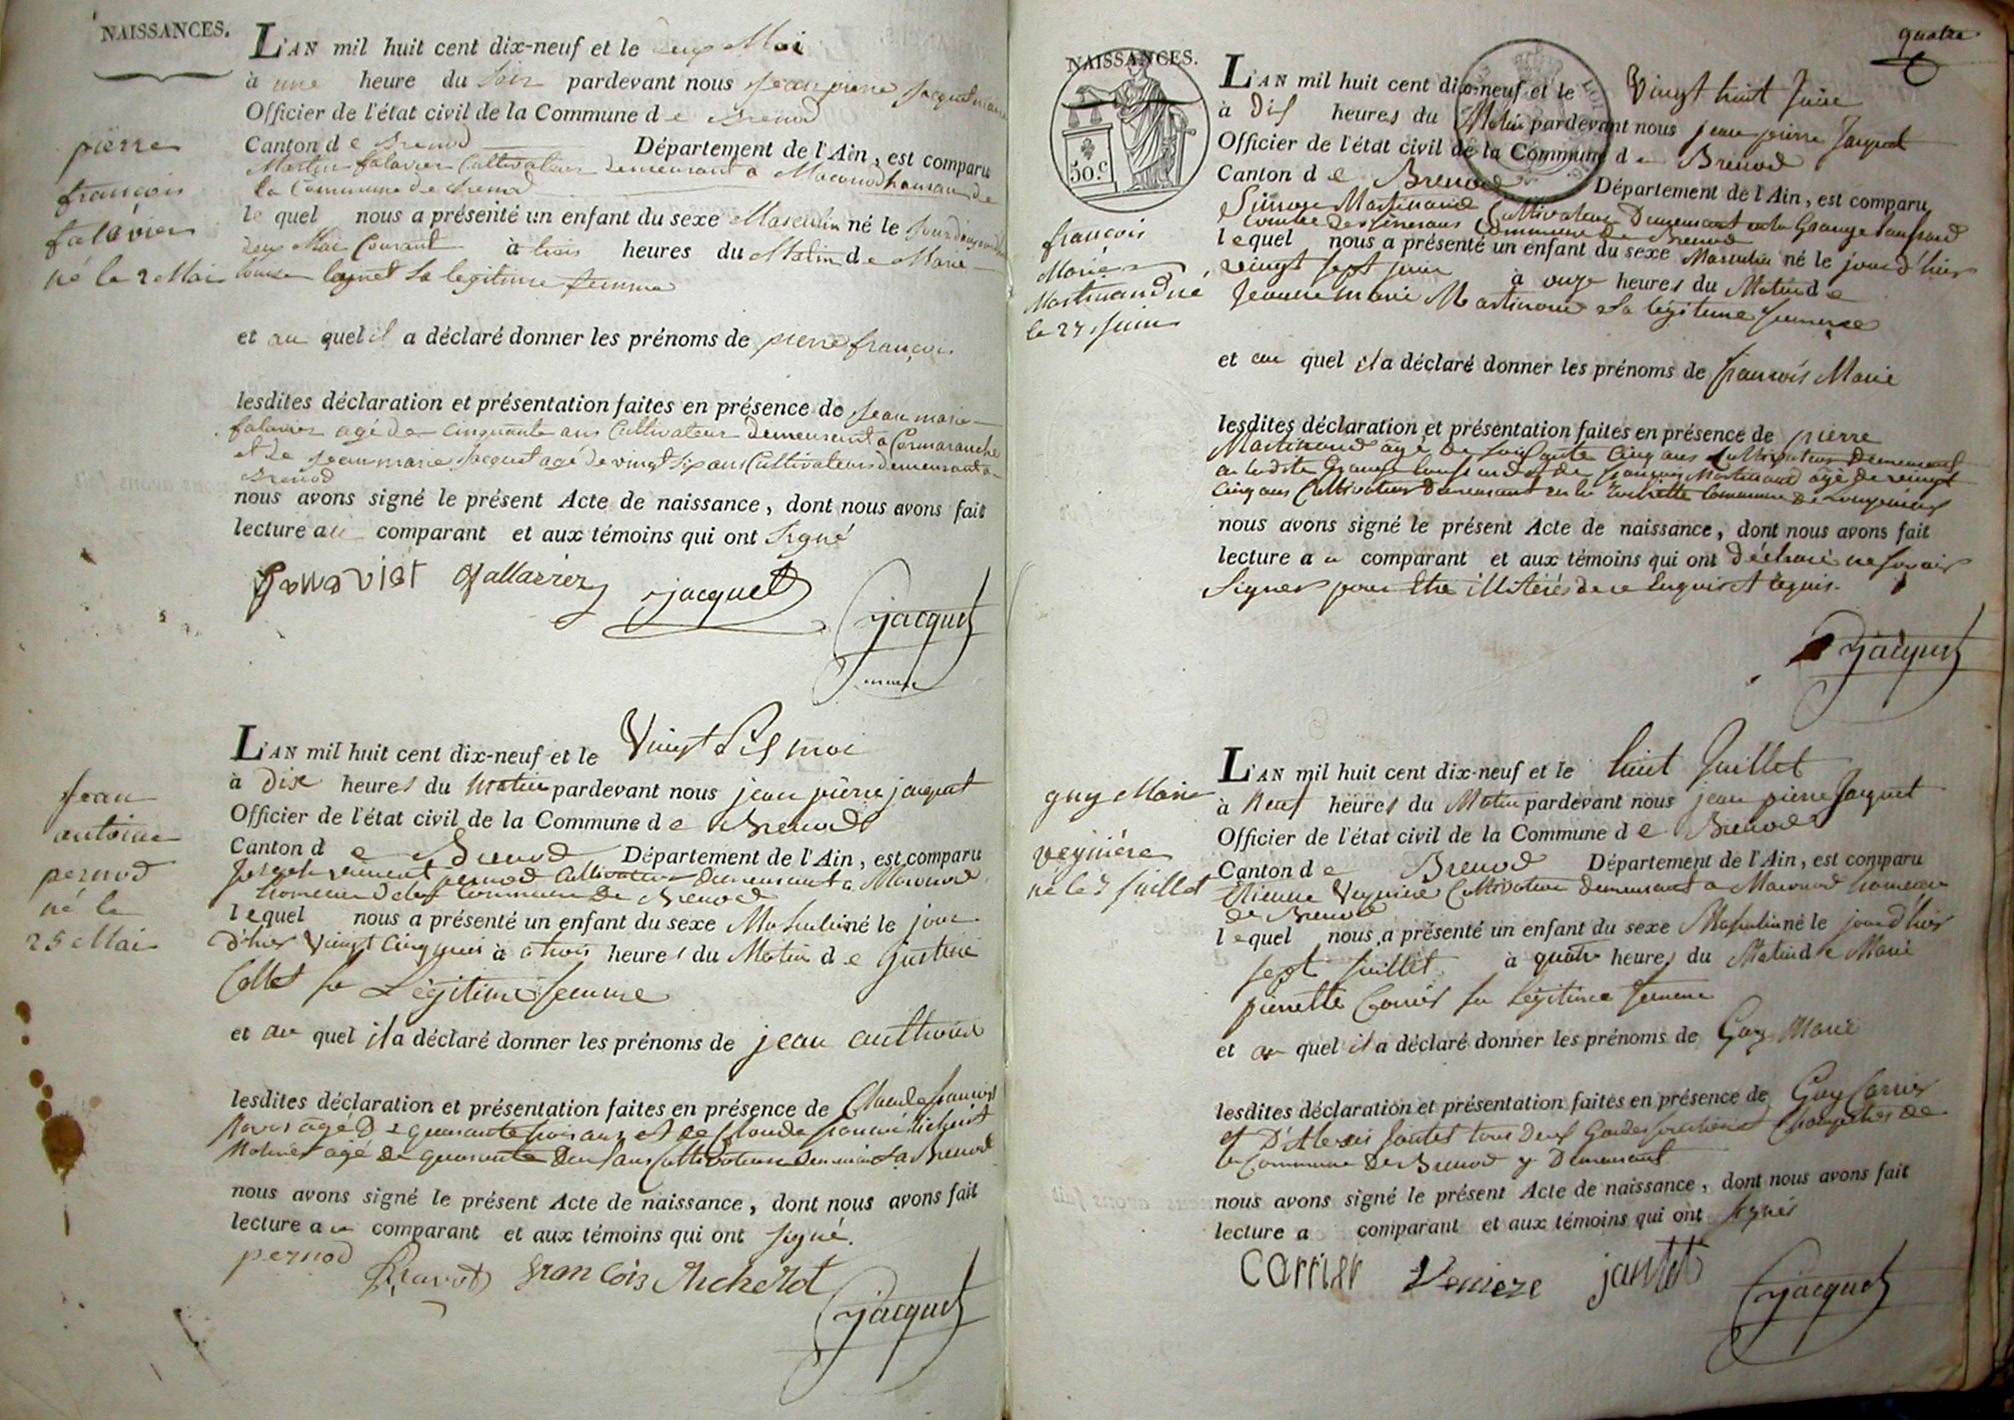 NAISSANCES.
L'AN mil huit cent dix-neuf et le deux Mai
à une heure du soir pardevant nous jean pierre jacquet maire
Officier de l'état civil de la Commune de Brenod
Canton de Brenod Département de l'Ain, est comparu
Martin falavier Cultivateur demeurant a Maconod hameau de
la Commune de Brenod
le quel nous a présenté un enfant du sexe Masculin né le jourd'hui
deux Mai Courant à trois heures du Matin de Marie
Louise sa legitime femme
et au quel il a déclaré donner les prénoms de pierre françois
lesdites déclaration et présentation faites en présence de jean marie
falavier agé de cinquante ans Cultivateur demeurant a Cormaranche
et de jean marie jacquet agé de vingt six ans Cultivateur demeurant a
Brenod
nous avons signé le présent Acte de naissance, dont nous avons fait
lecture au comparant et aux témoins qui ont signé
jacquet
jacquet
maire
pierre
françois
falavier
né le 2 Mai
L'AN mil huit cent dix-neuf et le Vingt Six mai
à Dix heures du matin pardevant nous jean pierre jacquet
Officier de l'état civil de la Commune de Brenod
Canton de Brenod Département de l'Ain, est comparu
pernod Cultivateur Demeurant a Maconod
hameau de la Commune de Brenod
lequel nous a présenté un enfant du sexe Masculin né le jour
d'hier Vingt Cinq mai à trois heures du Matin de justine
Collet sa Légitime femme
et au quel il a déclaré donner les prénoms de jean anthoine
lesdites déclaration et présentation faites en présence de Claude francois
Ravot agé de quarante trois ans et de Claude francois Richerot
agé de quarante Deux ans Cultivateurs Demeurant a Brenod
nous avons signé le présent Acte de naissance, dont nous avons fait
lecture au comparant et aux témoins qui ont signé.
pernod Ravot francois Richerot
jacquet
jean
antoine
pernod
né le
25 Mai
quatre
NAISSANCES.
50.c
L'AN mil huit cent dix-neuf et le Vingt huit Juin
à Dix heures du Matin pardevant nous jean pierre Jacquet
Officier de l'état civil de la Commune de Brenod
Canton de Brenod Département de l'Ain, est comparu
Simon Martinand Cultivateur Demeurant en la Grange
Commune de Brenod
lequel nous a présenté un enfant du sexe Masculin né le jour d'hier
vingt sept juin à onze heures du Matin de
Jeanne marie Martinand sa légitime femme
et au quel il a déclaré donner les prénoms de francois Marie
lesdites déclaration et présentation faites en présence de pierre
Martinand agé de soixante Cinq ans Cultivateur Demeurant
en ladite Grange et de francois Martinand agé de vingt
Cinq ans Cultivateur Demeurant en la Commune de
nous avons signé le présent Acte de naissance, dont nous avons fait
lecture au comparant et aux témoins qui ont déclaré ne savoir
Signer pour Etre illitérés de ce Enquis et requis.
jacquet
françois
Marie
Martinand né
le 27 Juin
L'AN mil huit cent dix-neuf et le huit Juillet
à Neuf heures du Matin pardevant nous jean pierre Jacquet
Officier de l'état civil de la Commune de Brenod
Canton de Brenod Département de l'Ain, est comparu
Etienne Cultivateur demeurant a Maconod hameau
de Brenod
lequel nous a présenté un enfant du sexe Masculin né le jour d'hier
sept Juillet à quatre heures du Matin de Marie
pierrette Carrier sa Légitime femme
et au quel il a déclaré donner les prénoms de Guy Marie
lesdites déclaration et présentation faites en présence de Guy Carrier
et D'Alexis Jantet tous Deux Gardes forestiers Champetres de
la Commune De Brenod y Demeurant
nous avons signé le présent Acte de naissance, dont nous avons fait
lecture a comparant et aux témoins qui ont signés
Carrier Veniere jantet
jacquet
guy Marie
né le 7 Juillet